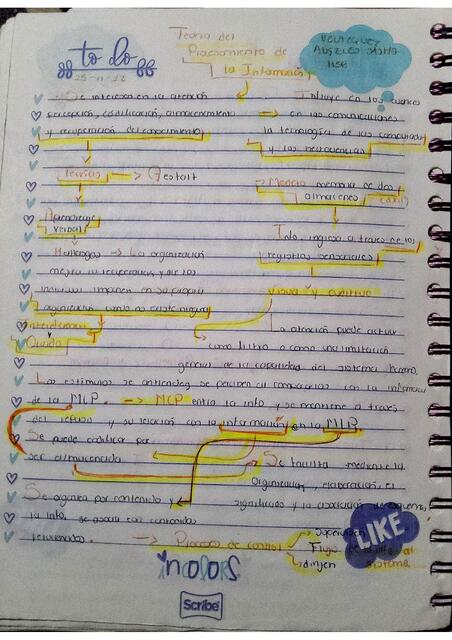 Teoria del
Procesamiento de
la Información
to do
25-11-22
VELAZQUEZ
Se interesa en la atención
percepción, codificación, almacenamiento
y recuperación del conocimiento
Influye en los avances
en las comunicaciones
la tecnología de las computad
y las neurociencias
Teorias → Gestalt
Modelo memoria de dos
almacenes (dual)
Aprendizaje
verbal
Info. ingresa a traves de los
registros sensoriales
Hallazgos → La organización
mejora la recuperación y que los
individuos imponen su propia
organización cuando no existe ninguna
visual y auditivo
La atención puede actuar
como filtro o como una limitación
general de la capacidad del sistema humano.
Los estimulos se atienden, se perciben al compararlos con la informacion
de la MLP. → MCP entra la info y se mantiene a traves
del repaso y su relación con la información en la MLP
Se puede codificar por
ser almacenada
Se facilita mediante la
organización, elaboración, el
significado y la
Se organiza por contenido y
la info. se asocia con contenidos
relacionados. → Proceso de control
supervisan
Flujo de la info al
dirigen sistema
LIKE
Scribe